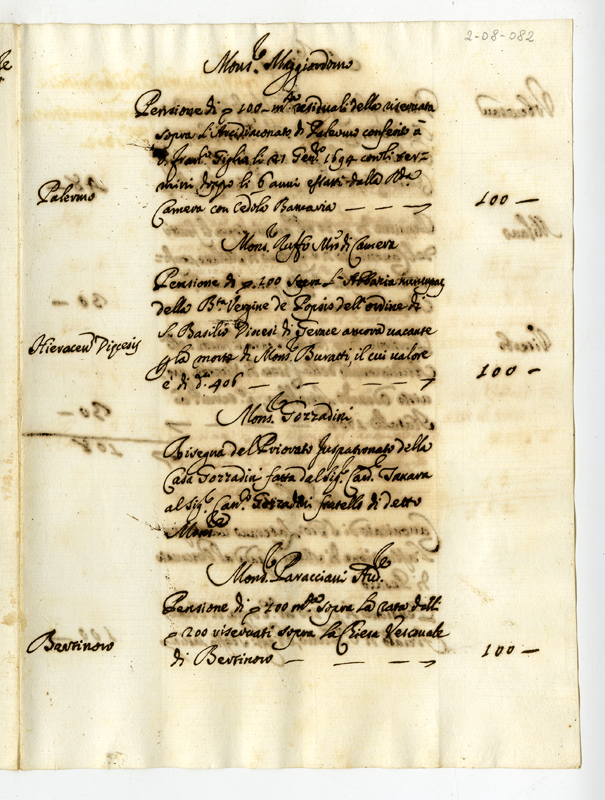 2-08-082
Mons.re Maggiordomo
Pensione di p 100 - m.ta residuali della riservata
sopra l'Arcidiaconato di Palermo conferito à
D. Fran.co Giglia li 21 Gen.ro 1694 con li ter=
mini doppo li 6 anni esatti dalla R.da
Palermo
Camera con Cedola Bancaria — — → 100 —
Mons.re Ruffo M.ro di Camera
Pensione di p 100 sopra l'Abbazia
della B.ta Vergine de Popsis dell'ordine di
S. Basilio Diocesi di Gerace ancora vacante
Hieracen. Diocesis
p la morte di Mons.re Buratti, il cui valore
è di d.ti 406 — — → 100 —
Mons.re Gozzadini
Risegna del Priorato Juspatronato della
Casa Gozzadini fatta dal Sig.r Card.le Tanara
al Sig.r Can.co Gozzadini fratello di detto
Mons.re
Mons.re Paracciani Aud.re
Pensione di p 100 m.ta sopra la rata delli
p 200 riservati sopra la Chiesa Vescovale
Bertinoro
di Bertinoro — — → 100 —